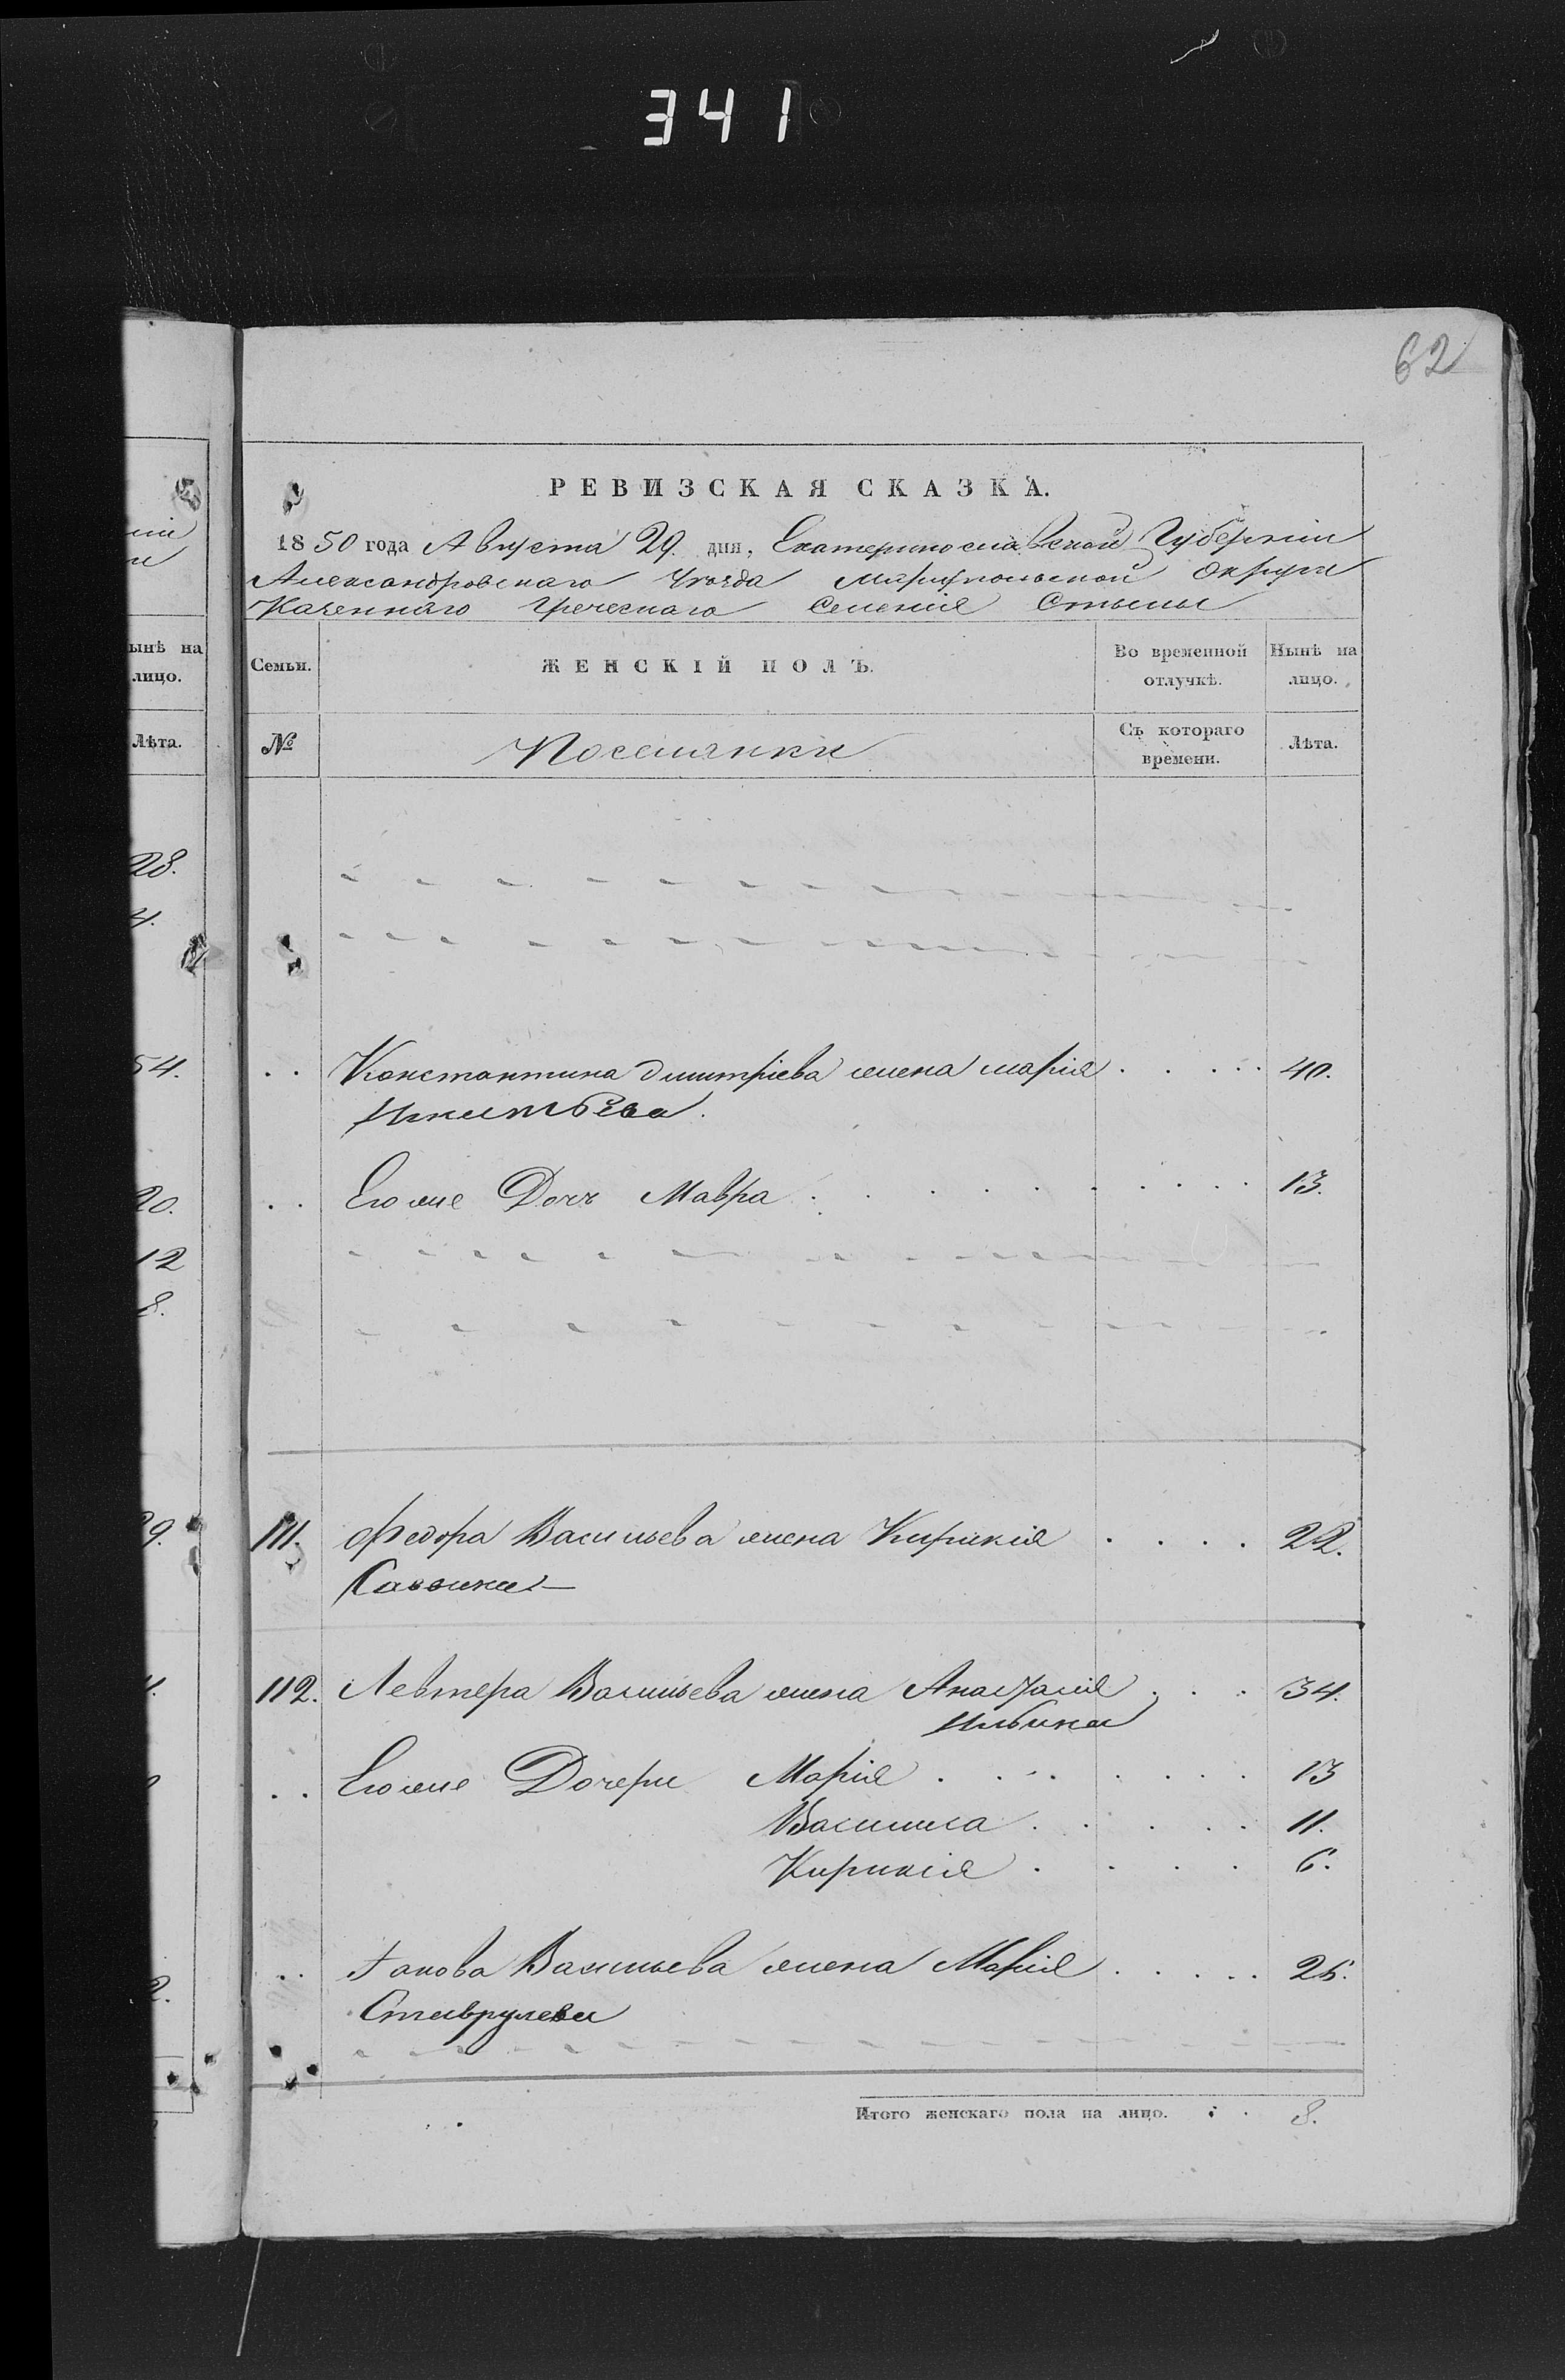 341
62
РЕВИЗСКАЯ СКАЗКА.
1850 года Августа 29. дня, Екатеринославской Губерніи
Александровскаго Уѣзда Маріупольской Округи
Казеннаго Греческаго Селенія Стылы
Семьи. ЖЕНСКІЙ ПОЛЪ. Во временной отлучкѣ. Нынѣ на лицо.
№ Поселянки Съ котораго времени. Лѣта.
Константина Дмитріева жена Марія . . . . . 40.
Его же Дочь Мавра . . . . . . . . 13.
111. Федора Васильева жена Кирикія . . . . 22.
Саввина
112. Левтера Васильева жена Анастасія . . . 34.
Ильина
Его же Дочери Марія . . . . . . . 13
Василиса . . . . . 11.
Кирикія . . . . 6.
Якова Васильева жена Марія . . . . . 25.
Ставрулева
Итого женскаго пола на лицо. . . 8.
ынѣ на
лицо.
Лѣта.
28.
4.
54.
20.
12
8.